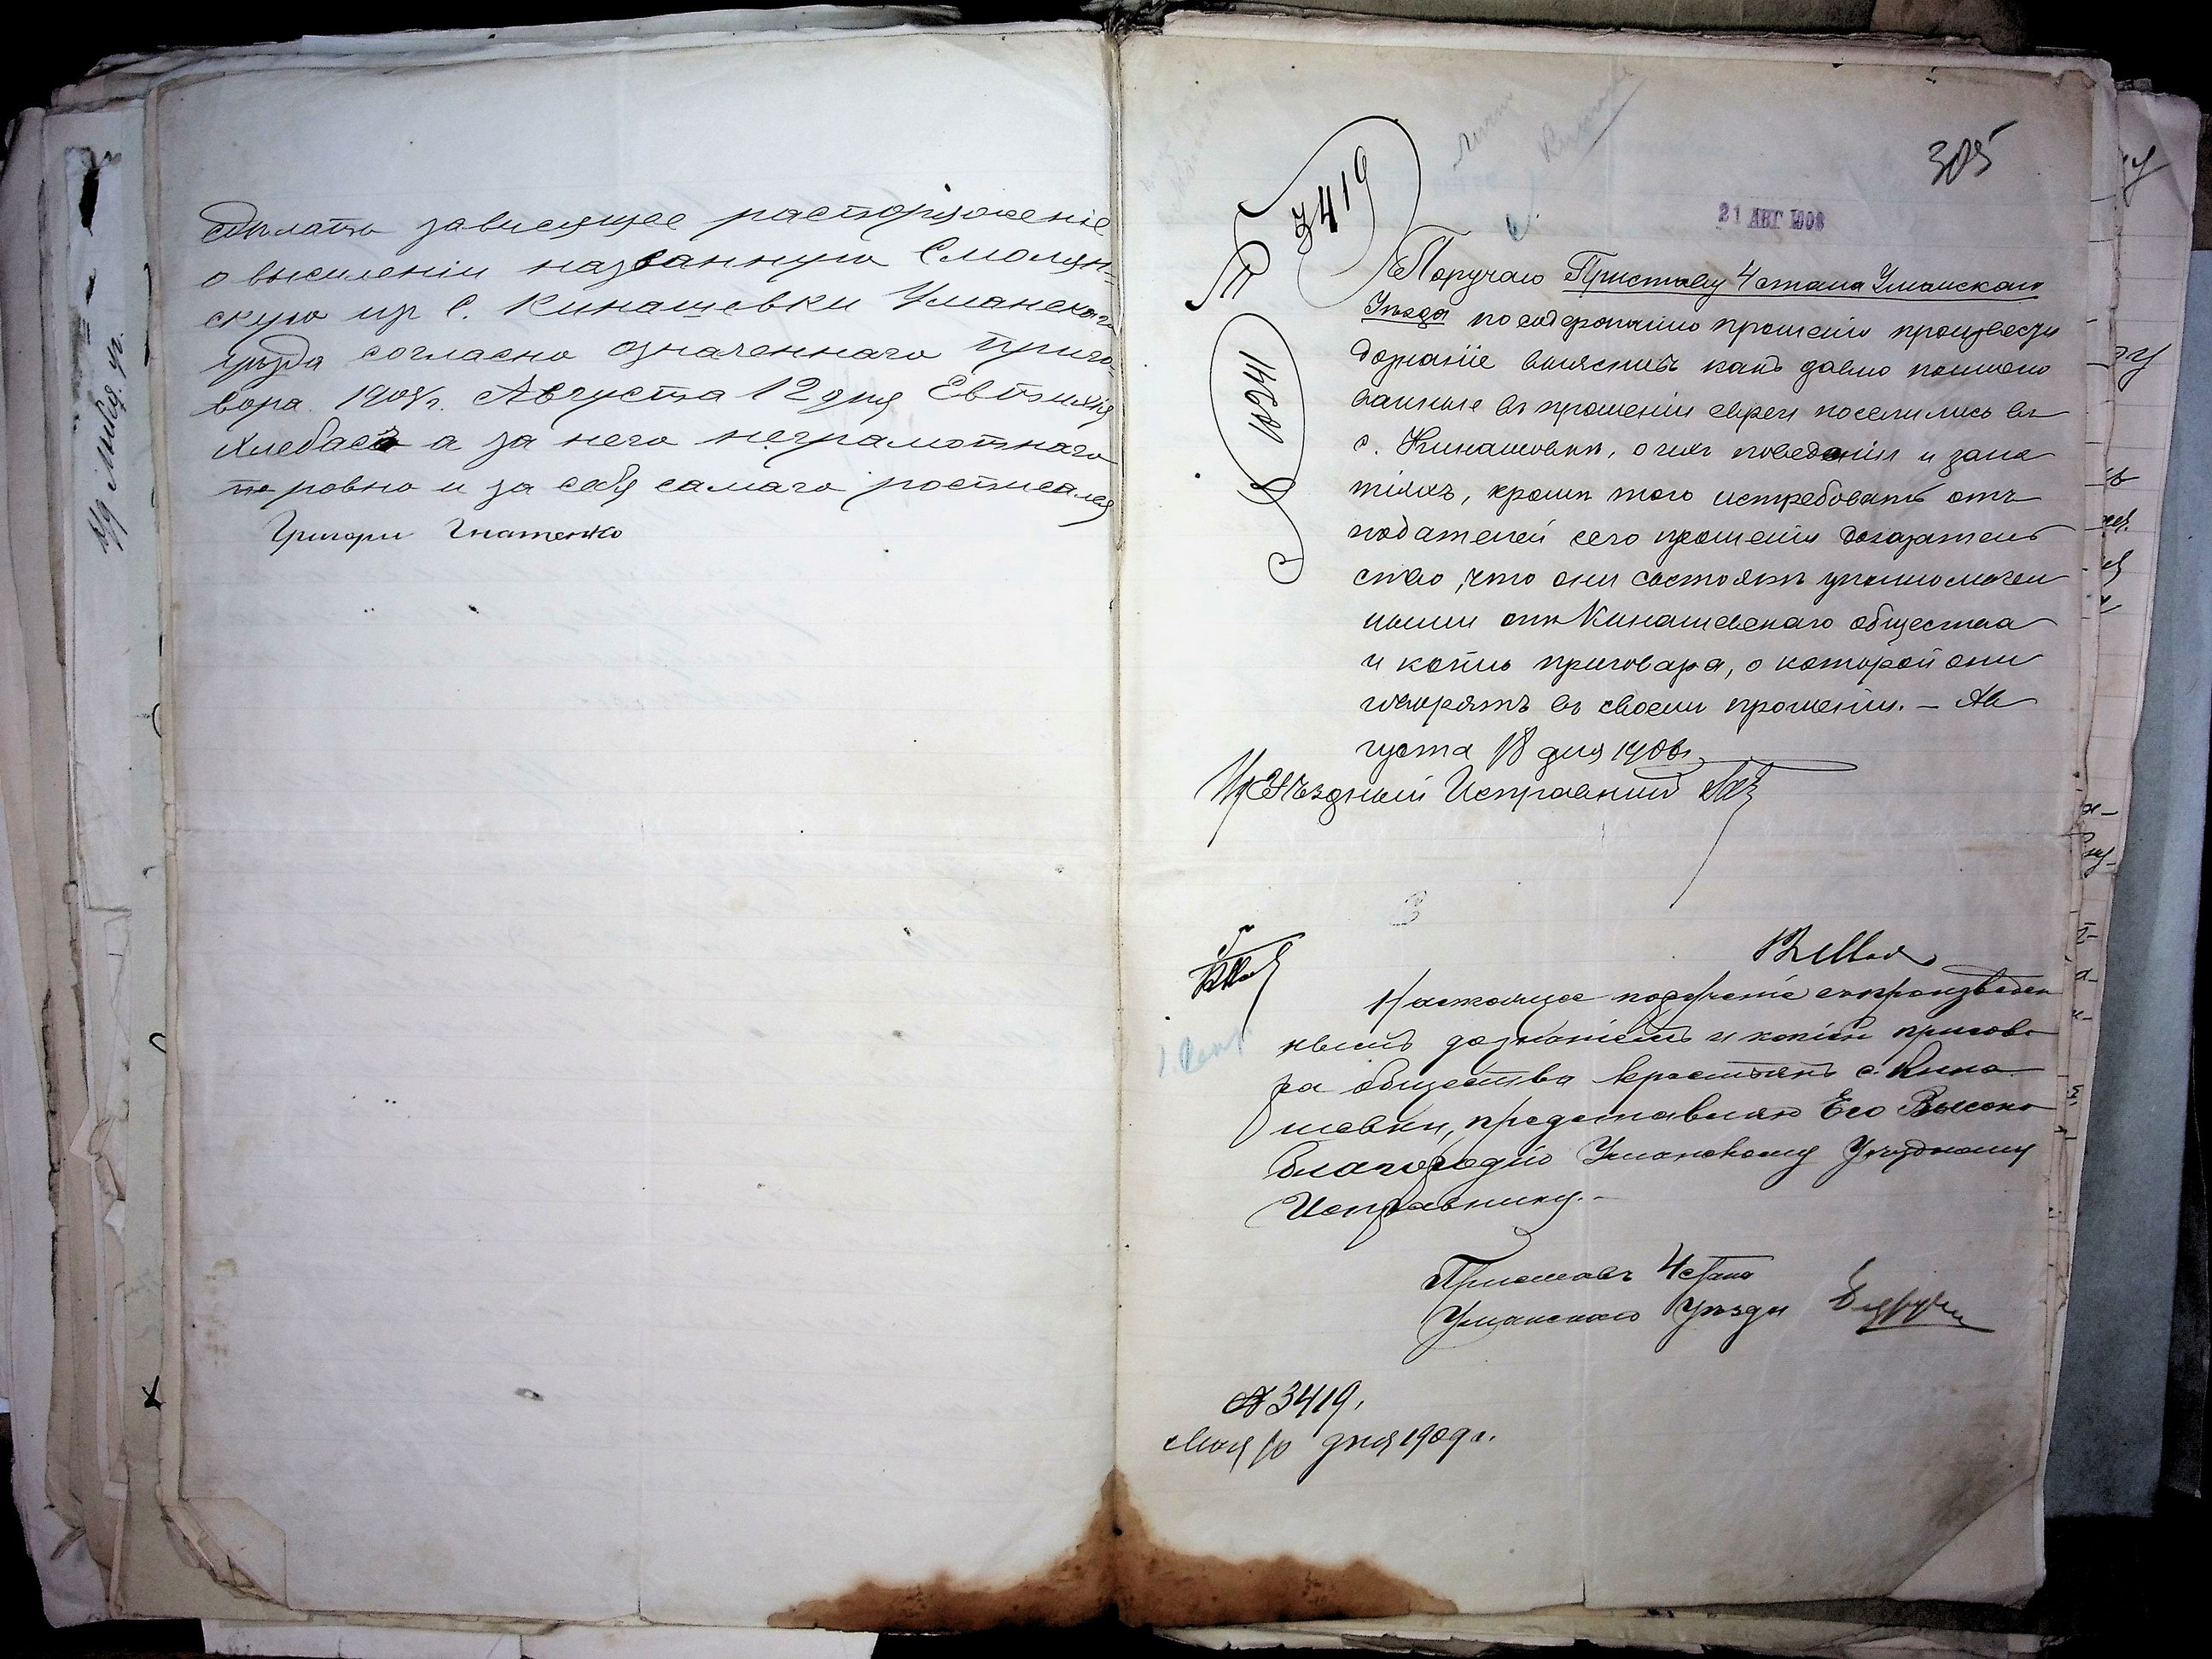 сдѣлать зависящее распоряженіе
о выселеніи названную Смолян-
скую из С. Кинашевки Уманскаго
уѣзда согласно означеннаго приго-
вора. 1908 г. Августа 12 дня Евтихій
Хлебас а за него неграмотнаго
то ровно и за себя самаго росписался
Григори Гнатенко
305
3419
21 АВГ 1908
10241
Поручаю Приставу 4 стана Уманскаго
Уѣзда по содержанію прошенія произвести
дознаніе выяснивъ какъ давно поимено
ванные въ прошеніи евреи поселились въ
с. Кинашовки, о ихъ поведеніи и заня
тіяхъ, кромѣ того истребовать отъ
подателей сего прошенія доказатель
ство, что они состоятъ уполномочен
ными отъ Кинашевскаго общества
и копію приговара, о которой они
говорятъ въ своемъ прошеніи. — Ав
густа 18 дня 1908 г.
Уѣздный Исправникъ
Настоящее порученіе съ произведен
нымъ дознаніемъ и копіей пригово
ра общества крестьянъ с. Кина
шевки, представляю Его Высоко
благородію Уманскому Уѣздному
Исправнику. —
Приставъ 4 стана
Уманскаго Уѣзда
№ 3419.
Мая 10 дня 1909 г.